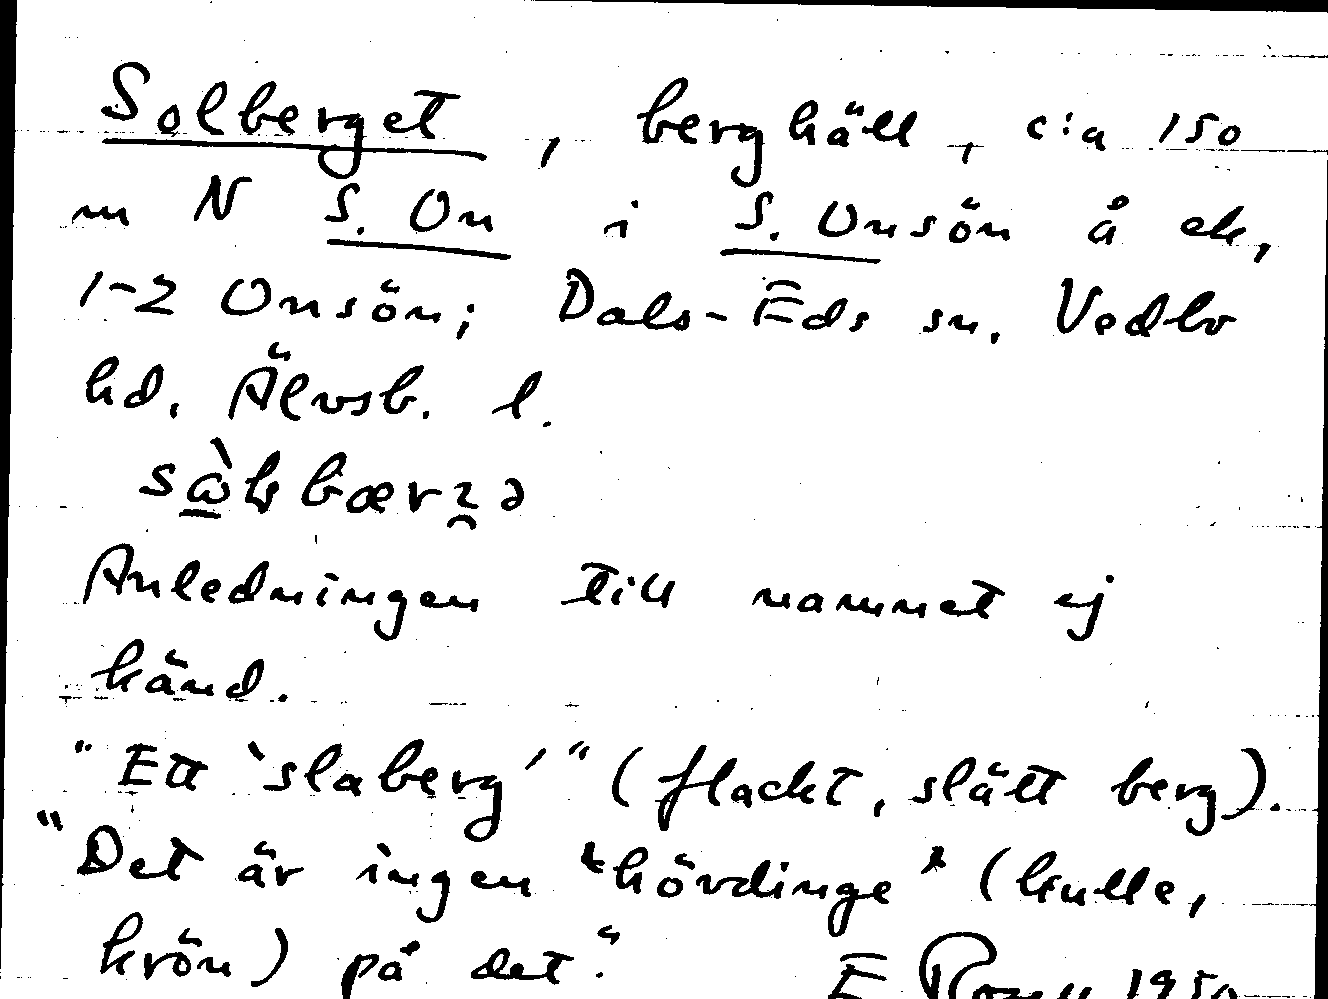 Solberget, berghäll, c:a 150
m N S. On i S. Onsön å ek,
1-2 Onsön; Dals-Eds sn. Vedbo
hd. Älvsb. l.
Anledningen till namnet ej
känd.
"Ett 'slaberg'" (flackt, slätt berg).
"Det är ingen 'hövdinge' (kulle,
krön) på det."
E Rosen 1950